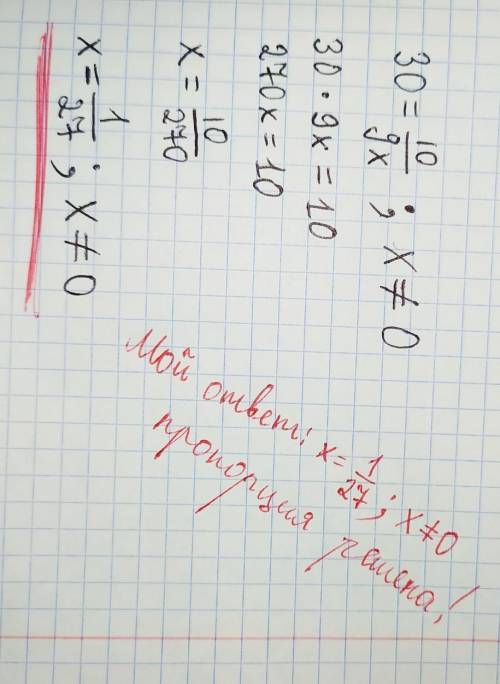 30 = 10/9x ; x ≠ 0
30 · 9x = 10
270x = 10
x = 10/270
x = 1/27 ; x ≠ 0
Мой ответ: x = 1/27 ; x ≠ 0
пропорция решена!